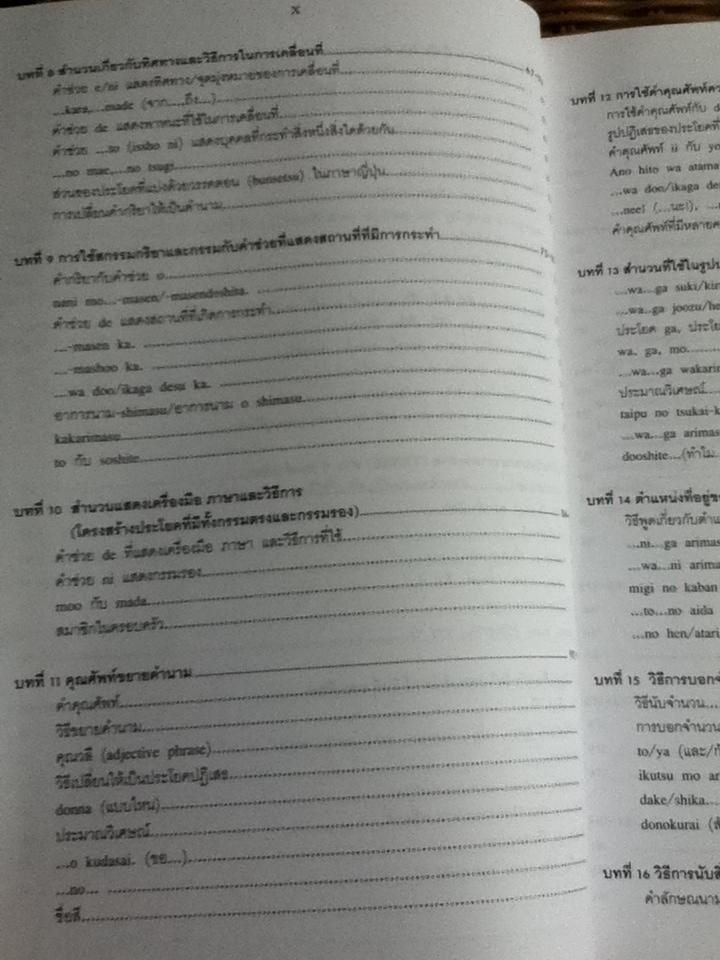 x
บทที่ 8 สำนวนเกี่ยวกับทิศทางและวิธีการในการเคลื่อนที่
คำช่วย e/ni แสดงทิศทาง/จุดมุ่งหมายของการเคลื่อนที่
...kara,...made (จาก...ถึง...)
คำช่วย de แสดงพาหนะที่ใช้ในการเคลื่อนที่
คำช่วย ...to (issho ni) แสดงบุคคลที่กระทำสิ่งหนึ่งสิ่งใดด้วยกัน
...no mae,...no tsugi
ส่วนของประโยคที่แบ่งด้วยวรรคตอน (bunsetsu) ในภาษาญี่ปุ่น
การเปลี่ยนคำกริยาให้เป็นคำนาม
บทที่ 9 การใช้สกรรมกริยาและกรรมกับคำช่วยที่แสดงสถานที่ที่มีการกระทำ
คำกริยากับคำช่วย o
nani mo...-masen/-masendeshita.
คำช่วย de แสดงสถานที่ที่เกิดการกระทำ
...-masen ka.
...-mashoo ka.
...wa doo/ikaga desu ka.
อาการนาม-shimasu/อาการนาม o shimasu
kakarimasu
to กับ soshite
บทที่ 10 สำนวนแสดงเครื่องมือ ภาษาและวิธีการ
(โครงสร้างประโยคที่มีทั้งกรรมตรงและกรรมรอง)
คำช่วย de ที่แสดงเครื่องมือ ภาษา และวิธีการที่ใช้
คำช่วย ni แสดงกรรมรอง
moo กับ mada
สมาชิกในครอบครัว
บทที่ 11 คุณศัพท์ขยายคำนาม
คำคุณศัพท์
วิธีขยายคำนาม
คุณวลี (adjective phrase)
วิธีเปลี่ยนให้เป็นประโยคปฏิเสธ
donna (แบบไหน)
ประมาณวิเศษณ์
...o kudasai. (ขอ...)
...no...
ชื่อสี
บทที่ 12 การใช้คำคุณศัพท์
การใช้คำคุณศัพท์กับ
รูปปฏิเสธของประโยคที่
คำคุณศัพท์ ii กับ yo
Ano hito wa atama
...wa doo/ikaga de
...nee! (...นะ!),
คำคุณศัพท์ที่มีหลาย
บทที่ 13 สำนวนที่ใช้ในรูป
...wa...ga suki/kir
...wa..ga joozu/he
ประโยค ga,
wa, ga, mo
...wa...ga wakarim
ประมาณวิเศษณ์
taipu no tsukai-k
...wa...ga arimas
dooshite...(ทำไม
บทที่ 14 ตำแหน่งที่อยู่
วิธีพูดเกี่ยวกับตำแ
...ni...ga arimas
...wa...ni arima
migi no kaban
...to...no aida
...no hen/atari
บทที่ 15 วิธีการบอกจำ
วิธีนับจำนวน
การบอกจำนวน
to/ya (และ/
ikutsu mo ar
dake/shika
donokurai
บทที่ 16 วิธีการนับ
คำลักษณนาม